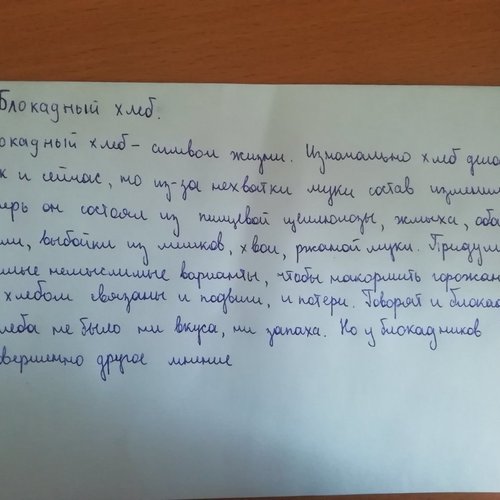 Блокадный хлеб.
окадный хлеб - символ жизни. Изначально хлеб дела
к и сейчас, но из-за нехватки муки состав изменил
перь он состоял из пищевой целлюлозы, жмыха, обо
ли, выбойки из мешков, хвои, ржаной муки. Придум
мые немыслимые варианты, чтобы накормить горожан
хлебом связаны и подвиги, и потери. Говорят и блокад
леба не было ни вкуса, ни запаха. Но у блокадников
вершенно другое мнение